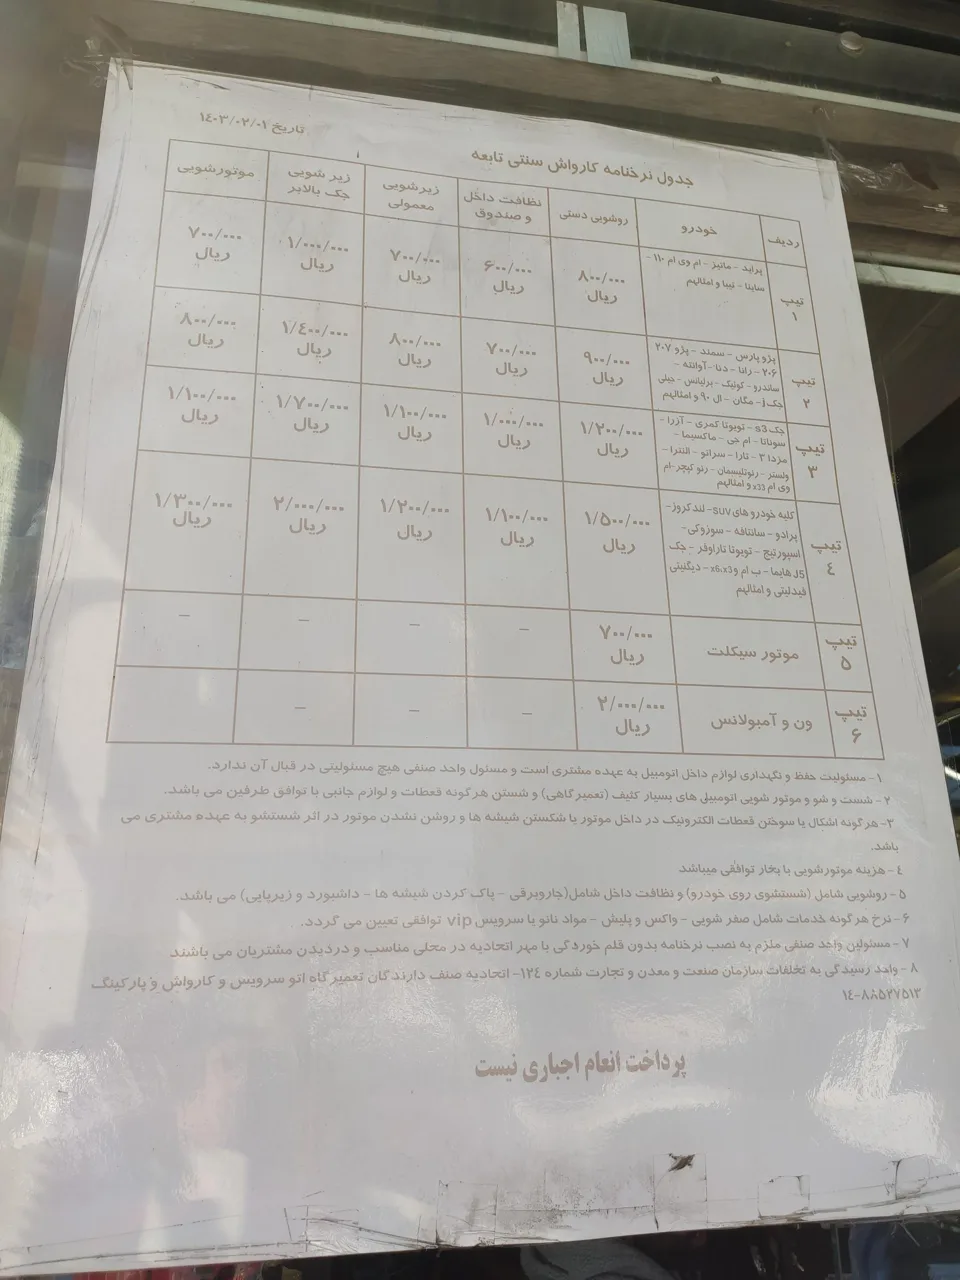 تاریخ ۱۴۰۳/۰۲/۰۱
جدول نرخنامه کارواش سنتی تابعه
ردیف
خودرو
روشویی دستی
نظافت داخل
و صندوق
زیرشویی
معمولی
زیر شویی
جک بالابر
موتورشویی
تیپ
۱
پراید - ماتیز - ام وی ام ۱۱۰ -
ساینا - تیبا و امثالهم
۸۰۰/۰۰۰
ریال
۶۰۰/۰۰۰
ریال
۷۰۰/۰۰۰
ریال
۱/۰۰۰/۰۰۰
ریال
۷۰۰/۰۰۰
ریال
تیپ
۲
پژو پارس - سمند - پژو ۲۰۷
۲۰۶ - رانا - دنا - آوانته -
ساندرو - کوئیک - برلیانس - جیلی
جک j - مگان - ال ۹۰ و امثالهم
۹۰۰/۰۰۰
ریال
۷۰۰/۰۰۰
ریال
۸۰۰/۰۰۰
ریال
۱/۴۰۰/۰۰۰
ریال
۸۰۰/۰۰۰
ریال
تیپ
۳
جک s3 - تویوتا کمری - آزرا -
سوناتا - ام جی - ماکسیما -
مزدا ۳ - تارا - سراتو - النترا -
ولستر - رنوتلیسمان - رنو کپچر-ام
وی ام x33 و امثالهم
۱/۲۰۰/۰۰۰
ریال
۱/۰۰۰/۰۰۰
ریال
۱/۱۰۰/۰۰۰
ریال
۱/۷۰۰/۰۰۰
ریال
۱/۱۰۰/۰۰۰
ریال
تیپ
۴
کلیه خودرو های SUV- لندکروز-
پرادو - سانتافه - سوزوکی-
اسپورتیج - تویوتا تاراوفر - جک
J5 هایما - ب ام و x6،x3 - دیگنیتی
فیدلیتی و امثالهم
۱/۵۰۰/۰۰۰
ریال
۱/۱۰۰/۰۰۰
ریال
۱/۲۰۰/۰۰۰
ریال
۲/۰۰۰/۰۰۰
ریال
۱/۳۰۰/۰۰۰
ریال
تیپ
۵
موتور سیکلت
۷۰۰/۰۰۰
ریال
–
–
–
–
تیپ
۶
ون و آمبولانس
۲/۰۰۰/۰۰۰
ریال
–
–
–
۱- مسئولیت حفظ و نگهداری لوازم داخل اتومبیل به عهده مشتری است و مسئول واحد صنفی هیچ مسئولیتی در قبال آن ندارد.
۲- شست و شو و موتور شویی اتومبیل های بسیار کثیف (تعمیرگاهی) و شستن هرگونه قطعات و لوازم جانبی با توافق طرفین می باشد.
۳- هرگونه اشکال یا سوختن قطعات الکترونیک در داخل موتور یا شکستن شیشه ها و روشن نشدن موتور در اثر شستشو به عهده مشتری می
باشد.
۴- هزینه موتورشویی با بخار توافقی میباشد
۵- روشویی شامل (شستشوی روی خودرو) و نظافت داخل شامل(جاروبرقی - پاک کردن شیشه ها - داشبورد و زیرپایی) می باشد.
۶- نرخ هرگونه خدمات شامل صفر شویی - واکس و پلیش - مواد نانو با سرویس vip توافقی تعیین می گردد.
۷- مسئولین واحد صنفی ملزم به نصب نرخنامه بدون قلم خوردگی با مهر اتحادیه در محلی مناسب و دردیدن مشتریان می باشند
۸- واحد رسیدگی به تخلفات سازمان صنعت و معدن و تجارت شماره ۱۲۴- اتحادیه صنف دارندگان تعمیرگاه اتو سرویس و کارواش و پارکینگ
۱۴-۸۸۵۲۷۵۱۲
پرداخت انعام اجباری نیست